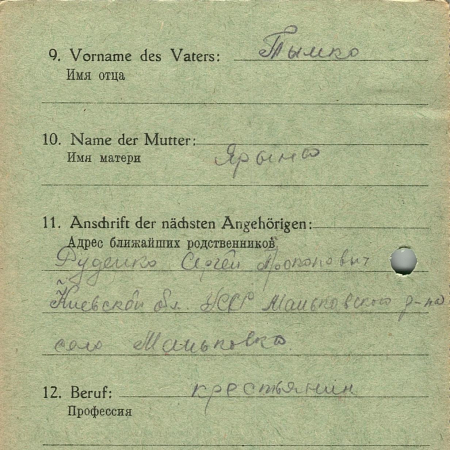 9. Vorname des Vaters: Тымко
Имя отца
10. Name der Mutter:
Имя матери Ярына
11. Anschrift der nächsten Angehörigen:
Адрес ближайших родственников
Руденко Сергей Прокопович
Киевской бл. УССР Маньковского р-на
село Маньковка
12. Beruf: крестьянин
Профессия